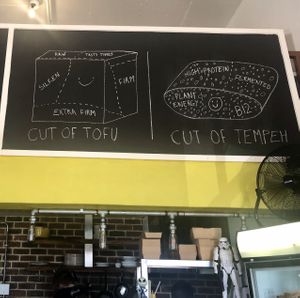 RAW TASTY TIMES
SILKEN
FIRM
EXTRA FIRM
CUT OF TOFU
HIGH PROTEIN
FERMENTED
PLANT
ENERGY
B12
CUT OF TEMPEH